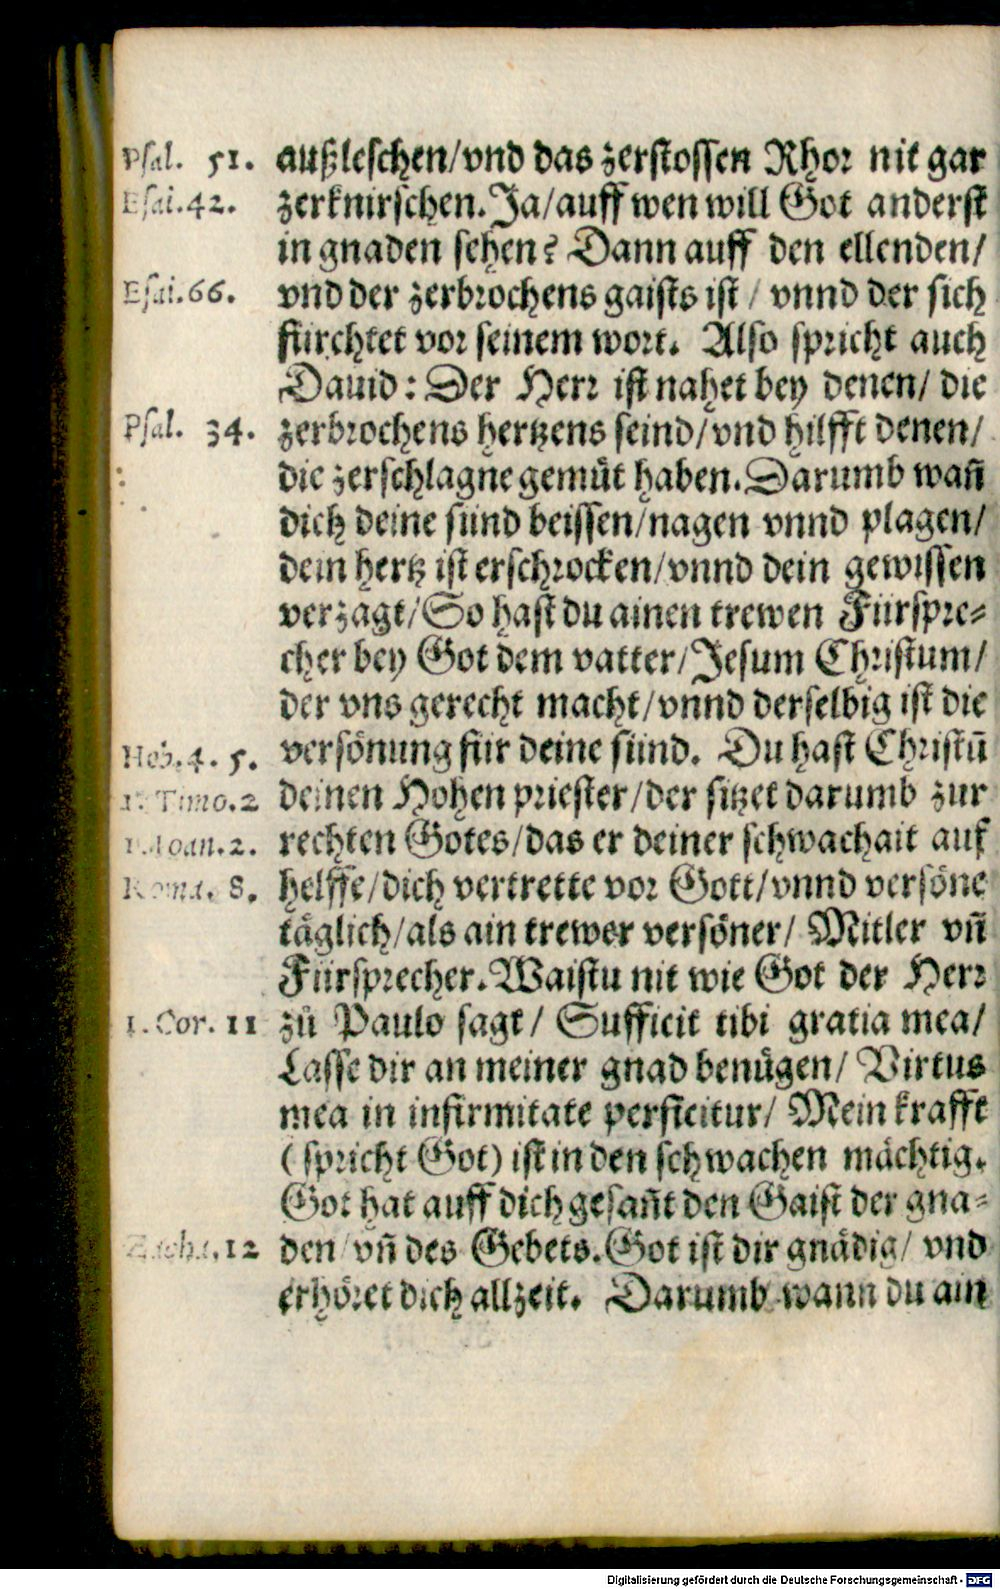 Psal. 51. außleschen/vnd das zerstossen Rhor nit gar
Esai.42. zerknirschen. Ja/auff wen will Got anderst
in gnaden sehen? Dann auff den ellenden/
Esai.66. vnd der zerbrochens gaists ist / vnnd der sich
fürchtet vor seinem wort. Also spricht auch
Dauid: Der Herr ist nahet bey denen/ die
Psal. 34. zerbrochens hertzens seind/vnd hilfft denen/
die zerschlagne gemuͤt haben. Darumb wañ
dich deine sünd beissen/nagen vnnd plagen/
dein hertz ist erschrocken/vnnd dein gewissen
verzagt/So hast du ainen trewen Fürspre-
cher bey Got dem vatter/Jesum Christum/
der vns gerecht macht/vnnd derselbig ist die
Heb.4. 5. versönung für deine sünd. Du hast Christū
1. Timo.2 deinen Hohen priester/der sitzet darumb zur
1.Ioan.2. rechten Gotes/das er deiner schwachait auf
Roma. 8. helffe/dich vertrette vor Gott/vnnd versöne
täglich/als ain trewer versöner/ Mitler vñ
Fürsprecher. Waistu nit wie Got der Herr
1. Cor. 11 zů Paulo sagt/ Sufficit tibi gratia mea/
Lasse dir an meiner gnad benuͤgen/ Virtus
mea in infirmitate perficitur/ Mein krafft
(spricht Got) ist in den schwachen mächtig.
Got hat auff dich gesañt den Gaist der gna-
Zacha.12 den/vñ des Gebets. Got ist dir gnädig/ vnd
erhöret dich allzeit. Darumb wann du ain
Digitalisierung gefördert durch die Deutsche Forschungsgemeinschaft - DFG